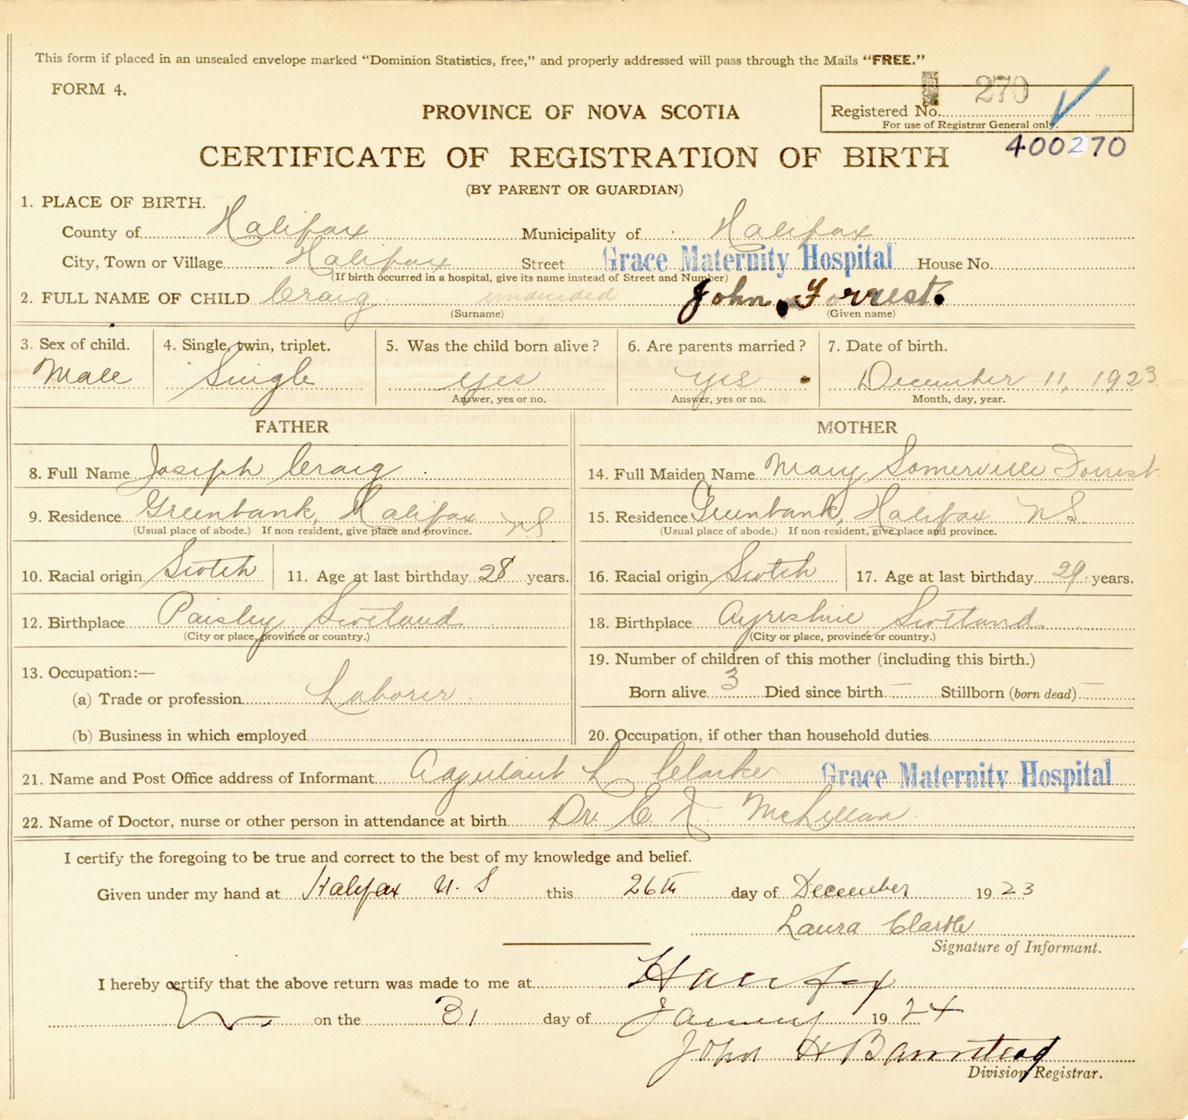 This form if placed in an unsealed envelope marked "Dominion Statistics, free," and properly addressed will pass through the Mails "FREE."
FORM 4.
270
PROVINCE OF NOVA SCOTIA
Registered No.
For use of Registrar General only.
400270
CERTIFICATE OF REGISTRATION OF BIRTH
(BY PARENT OR GUARDIAN)
1. PLACE OF BIRTH.
County of Halifax Municipality of Halifax
City, Town or Village Halifax Street Grace Maternity Hospital House No.
(If birth occurred in a hospital, give its name instead of Street and Number)
2. FULL NAME OF CHILD Craig undecided John Forrest.
(Surname) (Given name)
3. Sex of child. 4. Single, twin, triplet. 5. Was the child born alive? 6. Are parents married? 7. Date of birth.
Male Single yes yes December 11, 1923
Answer, yes or no. Answer, yes or no. Month, day, year.
FATHER MOTHER
8. Full Name Joseph Craig 14. Full Maiden Name Mary Somerville Forrest
9. Residence Greenbank, Halifax NS 15. Residence Greenbank, Halifax NS
(Usual place of abode.) If non resident, give place and province. (Usual place of abode.) If non-resident, give place and province.
10. Racial origin Scotch 11. Age at last birthday 28 years. 16. Racial origin Scotch 17. Age at last birthday 29 years.
12. Birthplace Paisley Scotland 18. Birthplace Ayrshire Scotland
(City or place, province or country.) (City or place, province or country.)
13. Occupation:— 19. Number of children of this mother (including this birth.)
(a) Trade or profession Laborer Born alive 3 Died since birth — Stillborn (born dead) —
(b) Business in which employed 20. Occupation, if other than household duties
21. Name and Post Office address of Informant Adjutant L Clarke Grace Maternity Hospital
22. Name of Doctor, nurse or other person in attendance at birth Dr. C McLellan
I certify the foregoing to be true and correct to the best of my knowledge and belief.
Given under my hand at Halifax N. S this 26th day of December 1923
Laura Clarke
Signature of Informant.
I hereby certify that the above return was made to me at Halifax
on the 31 day of January 1924
John H Barnstead
Division Registrar.